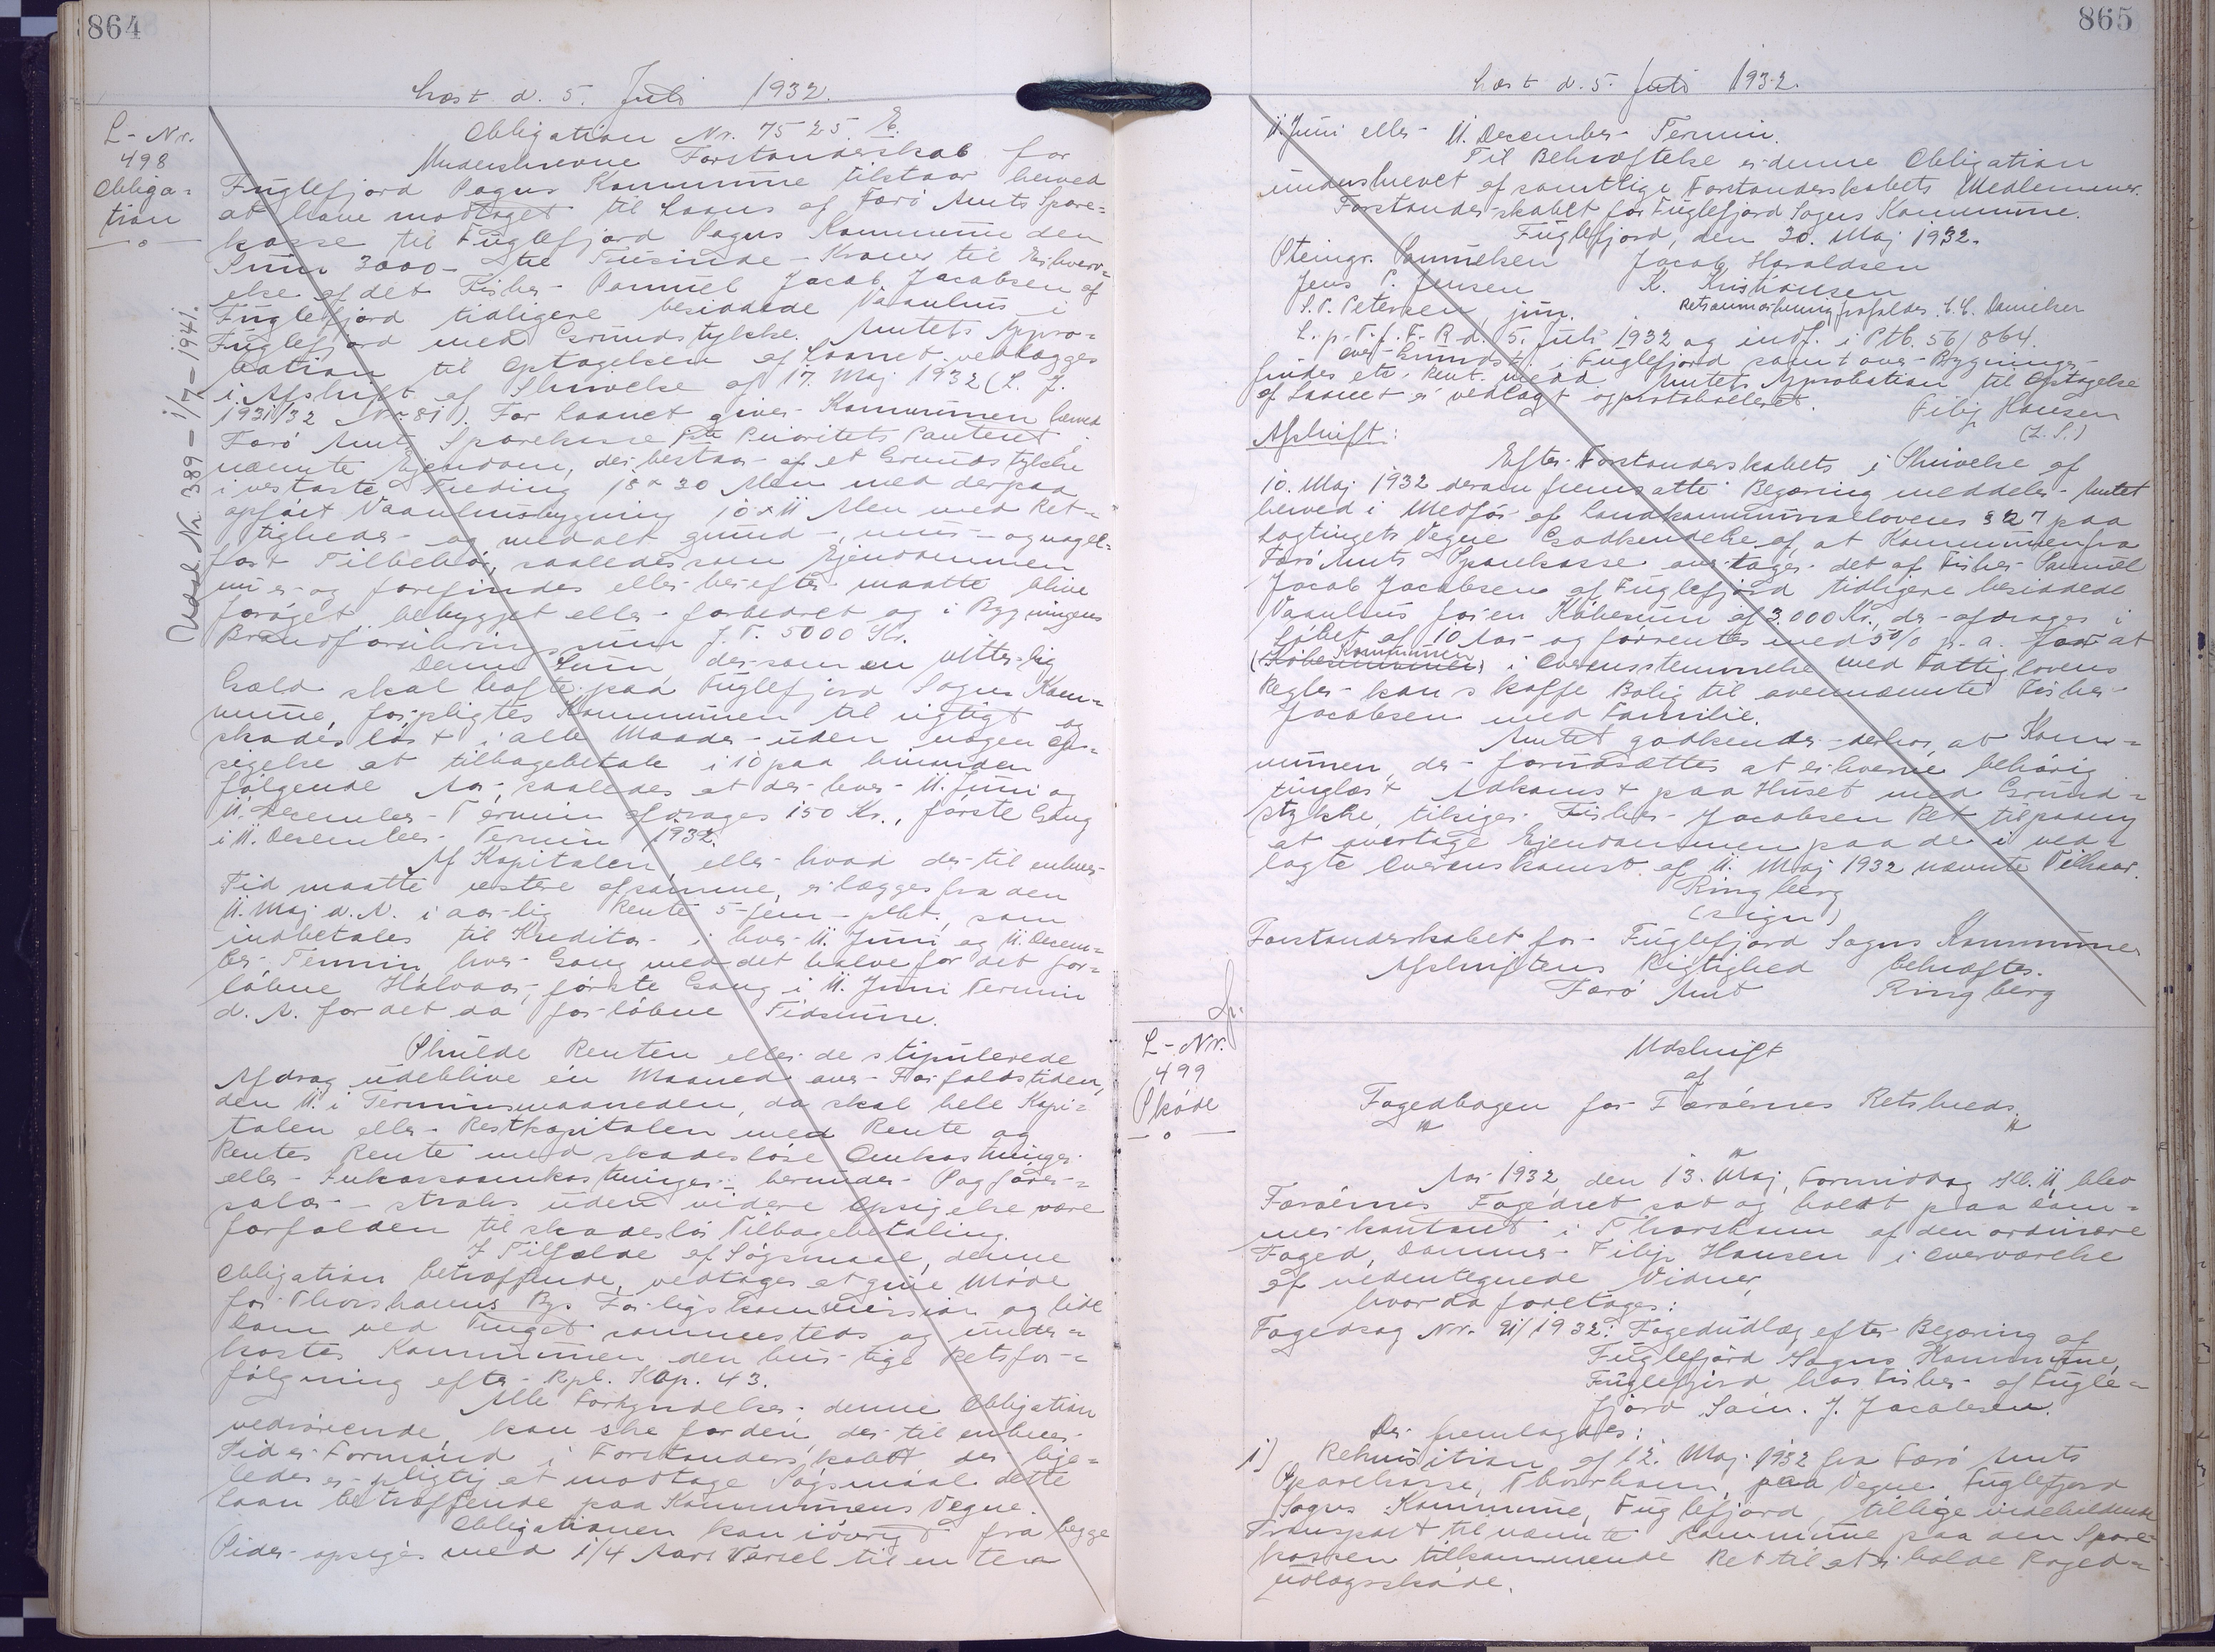 864
Læst d. 5. Juli 1932.
L-Nr.
498
Obliga-
tion
Udsl. Nr. 389 - 1/7 - 1941.
Obligation Nr. 7525. E.
Underskrevne Forstanderskab for
Fuglefjord Sogns Kommune tilstaar herved
at have modtaget til Laans af Færø Amts Spare-
kasse til Fuglefjord Sogns Kommune den
Sum 3000 - tre Tusinde - Kroner til Erhverv-
else af det Fisker Samuel Jacob Jacobsen af
Fuglefjord tidligere besiddede Vaanhus i
Fuglefjord med Grundstykke. Amtets Appro-
bation til Optagelsen af Laanet vedlægges
i Afskrift af Skrivelse af 17. Maj 1932 (L. J.
1931/32 Nr 81). For Laanet giver Kommunen herved
Færø Amts Sparekasse 1ste Prioritets Panteret i
nævnte Ejendom, der bestaar af et Grundstykke
i vestaste Treding 18 x 30 Alen med derpaa
opført Vaanhusbygning 10 x 11 Alen med Ret-
tigheder og med alt grund-, mur- og nagel-
fast Tilbehør, saaledes som Ejendommen
nu er og forefindes eller herefter maatte blive
forøget, bebygget eller forbedret og i Bygningens
Brandforsikringssum f. T. 5000 Kr.
Denne Sum der som en vitterlig
Gæld skal hæfte paa Fuglefjord Sogns Kom-
mune, forpligtes Kommunen til rigtigt og
skadesløst i alle Maader uden nogen Op-
sigelse at tilbagebetale i 10 paa hinanden
følgende Aar, saaledes at der hver 11. Juni og
11. December Termin afdrages 150 Kr., første Gang
i 11. Desember Termin 1932.
Af Kapitalen eller hvad der til enhver
Tid maatte restere af samme, erlægges fra den
11. Maj d. A. i aarlig Rente 5 - fem - pCt., som
indbetales til Kreditor i hver 11. Juni og 11. Decem-
ber Termin, hver Gang med det halve for det for-
løbne Halvaar, første Gang i 11. Juni Termin
d. A. for det da forløbne Tidsrum.
Skulde Renten eller de stipulerede
Afdrag udeblive én Maaned over Forfaldstiden,
den 11. i Terminsmaaneden, da skal hele Kapi-
talen eller Restkapitalen med Rente og
Rentes Rente med skadesløse Omkostninger
eller Inkassoomkostninger - herunder Sagfører-
salær - straks uden videre Opsigelse være
forfalden til skadesløs Tilbagebetaling.
I Tilfælde af Søgsmaal, denne
Obligation betræffende, vedtages at give Møde
for Thorshavns Bys Forligskommission og lide
Dom ved Tinget sammesteds og under-
kastes Kommunen den hurtige Retsfor-
følgning efter Rpl. Kap. 43.
Alle Forkyndelser denne Obligation
vedrørende, kan ske for den, der til enhver
Tid er Formand i Forstanderskabet der lige-
ledes er pligtig at modtage Søgsmaal dette
Laan betræffende paa Kommunens Vegne.
Obligationen kan iøvrigt fra begge
Sider opsiges med 1/4 Aars Varsel til en
865
Læst d. 5. Juli 1932.
11. Juni eller 11. December Termin.
Til Bekræftelse er denne Obligation
underskrevet af samtlige Forstanderskabets Medlemmer.
Forstanderskabet for Fuglefjord Sogns Kommune.
Fuglefjord, den 30. Maj 1932.
Steingr. Samuelsen Jacob Haraldsen
Jens P. Jensen K. Kristiansen
S. P. Petersen, jun.
L. p. T. f. F. R. d. 5. Juli 1932 og indf. i Ptb. 56/864.
findes etc. over Grundst. i Fuglefjord samt over Bygninger
Amtets Approbation til Optagelse
af Laanet er vedlagt og protokolleret.
Filip Hansen
(L. S.)
Afskrift:
Efter Forstanderskabets i Skrivelse af
10. Maj 1932 derom fremsatte Begæring meddeler Amtet
herved i Medfør af Landkommunallovens § 27 paa
Lagtingets Vegne Godkendelse af, at Kommunen fra
Færø Amts Sparekasse overtager det af Fisher Samuel
Jacob Jacobsen af Fuglefjord tidligere besiddede
Vaanhus for en Købesum af 3.000 Kr., der afdrages i
Løbet af 10 Aar og forrentes med 5% p. a. for at
Kommunen i Overensstemmelse med Fattiglovens
Regler kan skaffe Bolig til ovennævnte Fisker
Jacobsen med Familie.
Amtet godkender derhos, at Kom-
munen, der forudsættes at erhverve behørig
tinglæst Adkomst paa Huset med Grund-
stykke, tilsiger Fisher Jacobsen Ret til paany
at overtage Ejendommen paa de i ved-
lagte Overenskomst af 11. Maj 1932 nævnte Vilkaar.
Ringberg
(sign)
Forstanderskabet for Fuglefjord Sogns Kommune
Afskriftens Rigtighed bekræftes.
Færø Amt Ringberg
L-Nr.
499
Skøde
Udskrift
af
Fogedbogen for Færøernes Retskreds.
Aar 1932, den 13. Maj, Formiddag Kl. 11, blev
Færøernes Fogedret sat og holdt paa Dom-
merkontoret i Thorshavn af den ordinære
Foged, Dommer Filip Hansen i Overværelse
af vedentegnede Vidner,
hvor da foretoges:
Fogedsag Nr. 91/1932: Fogedudlæg efter Begæring af
Fuglefjord Sogns Kommune,
Fuglefjord hos Fisker af Fugle-
fjord Sam. J. Jacobsen.
Der fremlagdes:
1) Rekvisition af 12. Maj 1932 fra Færø Amts
Sparekasse, Thorshavn, paa Vegne Fuglefjord
Sogns Kommune, Fuglefjord, tillige indeholdende
Transport til nævnte Kommune paa den Spare-
kassen tilkommende Ret til at erholde Foged-
udlægsskøde.